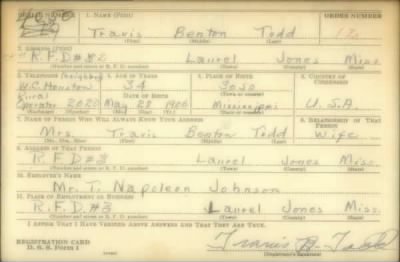 SERIAL NUMBER 1. NAME (Print) ORDER NUMBER
Travis Benton Todd 12
(First) (Middle) (Last)
2. ADDRESS (Print)
R.F.D. #2 Laurel Jones Miss.
(Number and street or R. F. D. number) (Town) (County) (State)
3. TELEPHONE 4. AGE IN YEARS 5. PLACE OF BIRTH 6. COUNTRY OF CITIZENSHIP
W.C. Houston 34
Rural DATE OF BIRTH
Operator 2020 May 28 1906 Mississippi U.S.A.
7. NAME OF PERSON WHO WILL ALWAYS KNOW YOUR ADDRESS 8. RELATIONSHIP OF THAT PERSON
Mrs. Travis Benton Todd Wife
(Mr., Mrs., Miss) (First) (Middle) (Last)
9. ADDRESS OF THAT PERSON
R.F.D. #3 Laurel Jones Miss.
(Number and street or R. F. D. number) (Town) (County) (State)
10. EMPLOYER'S NAME
Mr. T. Napoleon Johnson
11. PLACE OF EMPLOYMENT OR BUSINESS
R.F.D. #3 Laurel Jones Miss.
(Number and street or R. F. D. number) (Town) (County) (State)
I AFFIRM THAT I HAVE VERIFIED ABOVE ANSWERS AND THAT THEY ARE TRUE.
REGISTRATION CARD
D. S. S. Form 1 Travis B. Todd
(Registrant's signature)